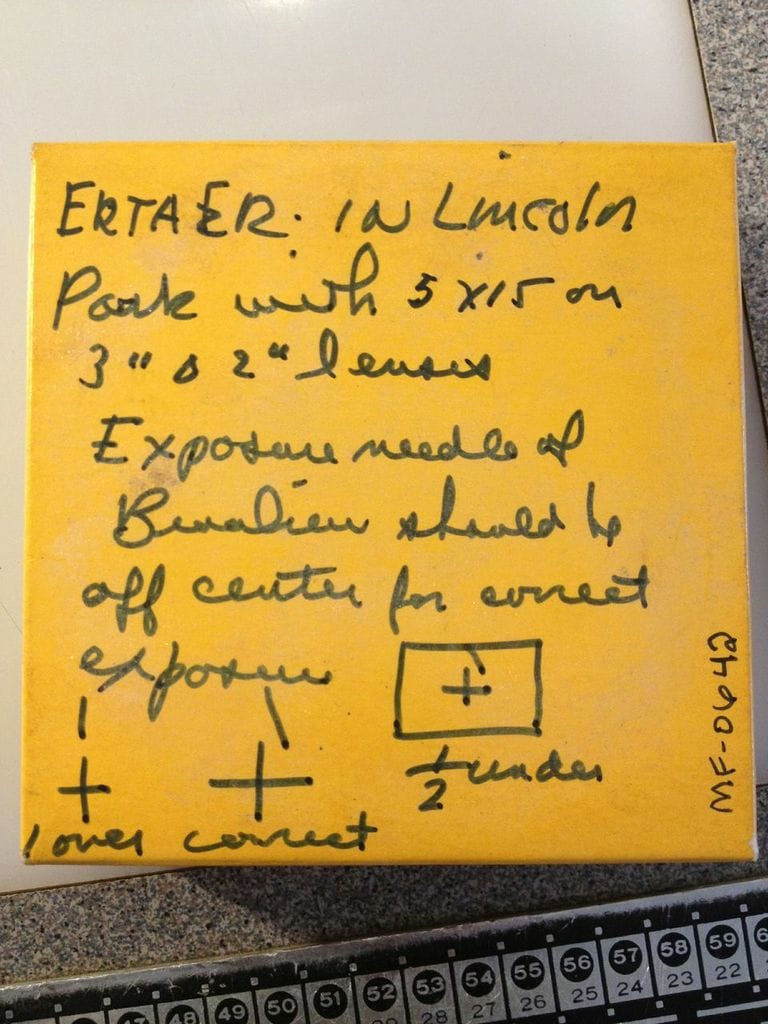 EKTA ER. IN Lincoln
Park with 5 x 15 on
3" & 2" lenses
Exposure needle of
should be
off center for correct
exposure
1 over correct
1/2 under
MF-0642
47 48 49 50 51 52 53 54 55 56 57 58 59
28 27 26 25 24 23 22